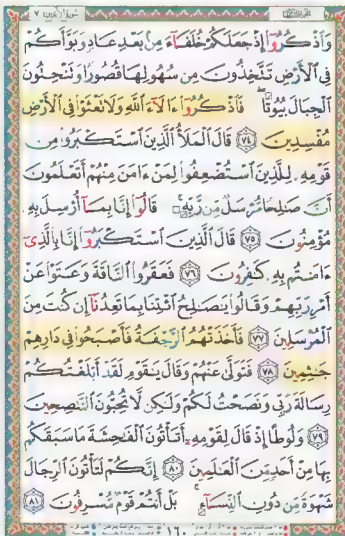 سورة الأعراف ٧
وَٱذْكُرُوٓا۟ إِذْ جَعَلَكُمْ خُلَفَآءَ مِنۢ بَعْدِ عَادٍ وَبَوَّأَكُمْ
فِى ٱلْأَرْضِ تَتَّخِذُونَ مِن سُهُولِهَا قُصُورًا وَتَنْحِتُونَ
ٱلْجِبَالَ بُيُوتًا ۖ فَٱذْكُرُوٓا۟ ءَالَآءَ ٱللَّهِ وَلَا تَعْثَوْا۟ فِى ٱلْأَرْضِ
مُفْسِدِينَ ٧٤ قَالَ ٱلْمَلَأُ ٱلَّذِينَ ٱسْتَكْبَرُوا۟ مِن
قَوْمِهِۦ لِلَّذِينَ ٱسْتُضْعِفُوا۟ لِمَنْ ءَامَنَ مِنْهُمْ أَتَعْلَمُونَ
أَنَّ صَٰلِحًا مُّرْسَلٌ مِّن رَّبِّهِۦ ۚ قَالُوٓا۟ إِنَّا بِمَآ أُرْسِلَ بِهِۦ
مُؤْمِنُونَ ٧٥ قَالَ ٱلَّذِينَ ٱسْتَكْبَرُوٓا۟ إِنَّا بِٱلَّذِىٓ
ءَامَنتُم بِهِۦ كَٰفِرُونَ ٧٦ فَعَقَرُوا۟ ٱلنَّاقَةَ وَعَتَوْا۟ عَنْ
أَمْرِ رَبِّهِمْ وَقَالُوا۟ يَٰصَٰلِحُ ٱئْتِنَا بِمَا تَعِدُنَآ إِن كُنتَ مِنَ
ٱلْمُرْسَلِينَ ٧٧ فَأَخَذَتْهُمُ ٱلرَّجْفَةُ فَأَصْبَحُوا۟ فِى دَارِهِمْ
جَٰثِمِينَ ٧٨ فَتَوَلَّىٰ عَنْهُمْ وَقَالَ يَٰقَوْمِ لَقَدْ أَبْلَغْتُكُمْ
رِسَالَةَ رَبِّى وَنَصَحْتُ لَكُمْ وَلَٰكِن لَّا تُحِبُّونَ ٱلنَّٰصِحِينَ
٧٩ وَلُوطًا إِذْ قَالَ لِقَوْمِهِۦٓ أَتَأْتُونَ ٱلْفَٰحِشَةَ مَا سَبَقَكُم
بِهَا مِنْ أَحَدٍ مِّنَ ٱلْعَٰلَمِينَ ٨٠ إِنَّكُمْ لَتَأْتُونَ ٱلرِّجَالَ
شَهْوَةً مِّن دُونِ ٱلنِّسَآءِ ۚ بَلْ أَنتُمْ قَوْمٌ مُّسْرِفُونَ ٨١
١٦٠